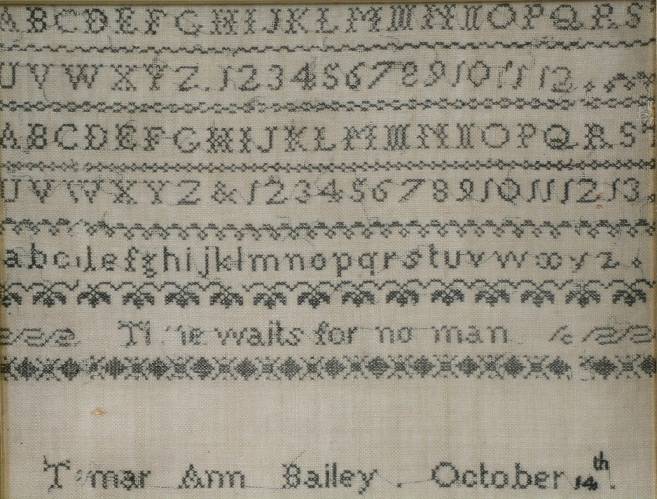 A B C D E F G H I J K L M M N N O P Q R S
U V W X Y Z . 1 2 3 4 5 6 7 8 9 10 11 12 .
A B C D E F G H I J K L M M N N O P Q R S
U V W X Y Z & 1 2 3 4 5 6 7 8 9 10 11 12 13 .
a b c d e f g h i j k l m n o p q r s t u v w x y z .
Time waits for no man
Tamar Ann Bailey . October 14th .